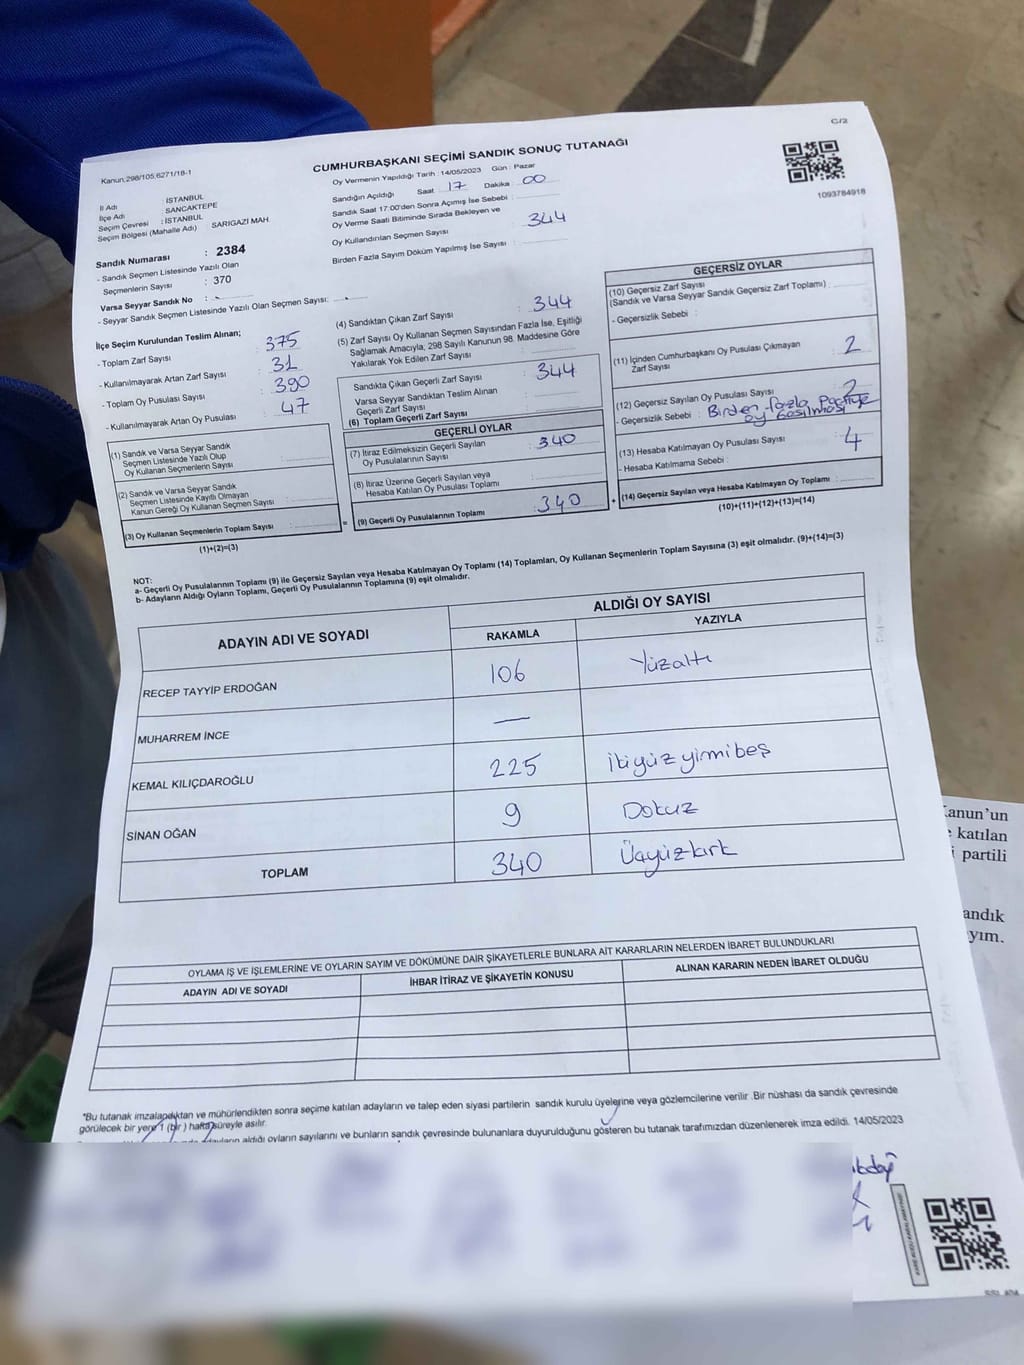 C/2
Kanun:298/105,6271/18-1
CUMHURBAŞKANI SEÇİMİ SANDIK SONUÇ TUTANAĞI
Oy Vermenin Yapıldığı Tarih : 14/05/2023 Gün : Pazar
Sandığın Açıldığı Saat 17 Dakika 00
Sandık Saat 17:00'den Sonra Açımış İse Sebebi :
Oy Verme Saati Bitiminde Sırada Bekleyen ve
Oy Kullandırılan Seçmen Sayısı : 344
Birden Fazla Sayım Döküm Yapılmış İse Sayısı :
1093784918
İl Adı : İSTANBUL
İlçe Adı : SANCAKTEPE
Seçim Çevresi : İSTANBUL
Seçim Bölgesi (Mahalle Adı) SARIGAZİ MAH.
Sandık Numarası : 2384
- Sandık Seçmen Listesinde Yazılı Olan
Seçmenlerin Sayısı : 370
Varsa Seyyar Sandık No :
- Seyyar Sandık Seçmen Listesinde Yazılı Olan Seçmen Sayısı:
İlçe Seçim Kurulundan Teslim Alınan;
- Toplam Zarf Sayısı : 375
- Kullanılmayarak Artan Zarf Sayısı : 31
- Toplam Oy Pusulası Sayısı : 390
- Kullanılmayarak Artan Oy Pusulası : 47
(1) Sandık ve Varsa Seyyar Sandık
Seçmen Listesinde Yazılı Olup
Oy Kullanan Seçmenlerin Sayısı :
(2) Sandık ve Varsa Seyyar Sandık
Seçmen Listesinde Kayıtlı Olmayan
Kanun Gereği Oy Kullanan Seçmen Sayısı :
(3) Oy Kullanan Seçmenlerin Toplam Sayısı :
(1)+(2)=(3)
(4) Sandıktan Çıkan Zarf Sayısı : 344
(5) Zarf Sayısı Oy Kullanan Seçmen Sayısından Fazla İse, Eşitliği
Sağlamak Amacıyla, 298 Sayılı Kanunun 98. Maddesine Göre
Yakılarak Yok Edilen Zarf Sayısı :
Sandıkta Çıkan Geçerli Zarf Sayısı : 344
Varsa Seyyar Sandıktan Teslim Alınan
Geçerli Zarf Sayısı :
(6) Toplam Geçerli Zarf Sayısı
GEÇERLİ OYLAR
(7) İtiraz Edilmeksizin Geçerli Sayılan
Oy Pusulalarının Sayısı : 340
(8) İtiraz Üzerine Geçerli Sayılan veya
Hesaba Katılan Oy Pusulası Toplamı :
= (9) Geçerli Oy Pusulalarının Toplamı : 340 +
GEÇERSİZ OYLAR
(10) Geçersiz Zarf Sayısı :
(Sandık ve Varsa Seyyar Sandık Geçersiz Zarf Toplamı)
- Geçersizlik Sebebi :
(11) İçinden Cumhurbaşkanı Oy Pusulası Çıkmayan
Zarf Sayısı : 2
(12) Geçersiz Sayılan Oy Pusulası Sayısı : 2
- Geçersizlik Sebebi : Birden fazla
oy basılması
(13) Hesaba Katılmayan Oy Pusulası Sayısı : 4
- Hesaba Katılmama Sebebi :
(14) Geçersiz Sayılan veya Hesaba Katılmayan Oy Toplamı :
(10)+(11)+(12)+(13)=(14)
NOT:
a- Geçerli Oy Pusulalarının Toplamı (9) ile Geçersiz Sayılan veya Hesaba Katılmayan Oy Toplamı (14) Toplamları, Oy Kullanan Seçmenlerin Toplam Sayısına (3) eşit olmalıdır. (9)+(14)=(3)
b- Adayların Aldığı Oyların Toplamı, Geçerli Oy Pusulalarının Toplamına (9) eşit olmalıdır.
ADAYIN ADI VE SOYADI
ALDIĞI OY SAYISI
RAKAMLA YAZIYLA
RECEP TAYYİP ERDOĞAN 106 Yüzaltı
MUHARREM İNCE —
KEMAL KILIÇDAROĞLU 225 ikiyüz yirmibeş
SİNAN OĞAN 9 Dokuz
TOPLAM 340 Üçyüzkırk
OYLAMA İŞ VE İŞLEMLERİNE VE OYLARIN SAYIM VE DÖKÜMÜNE DAİR ŞİKAYETLERLE BUNLARA AİT KARARLARIN NELERDEN İBARET BULUNDUKLARI
ADAYIN ADI VE SOYADI İHBAR İTİRAZ VE ŞİKAYETİN KONUSU ALINAN KARARIN NEDEN İBARET OLDUĞU
*Bu tutanak imzalandıktan ve mühürlendikten sonra seçime katılan adayların ve talep eden siyasi partilerin sandık kurulu üyelerine veya gözlemcilerine verilir .Bir nüshası da sandık çevresinde
görülecek bir yere 1 (bir ) hafta süreyle asılır.
aldığı oyların sayılarını ve bunların sandık çevresinde bulunanlara duyurulduğunu gösteren bu tutanak tarafımızdan düzenlenerek imza edildi. 14/05/2023
Kanun'un
katılan
partili
andık
yım.